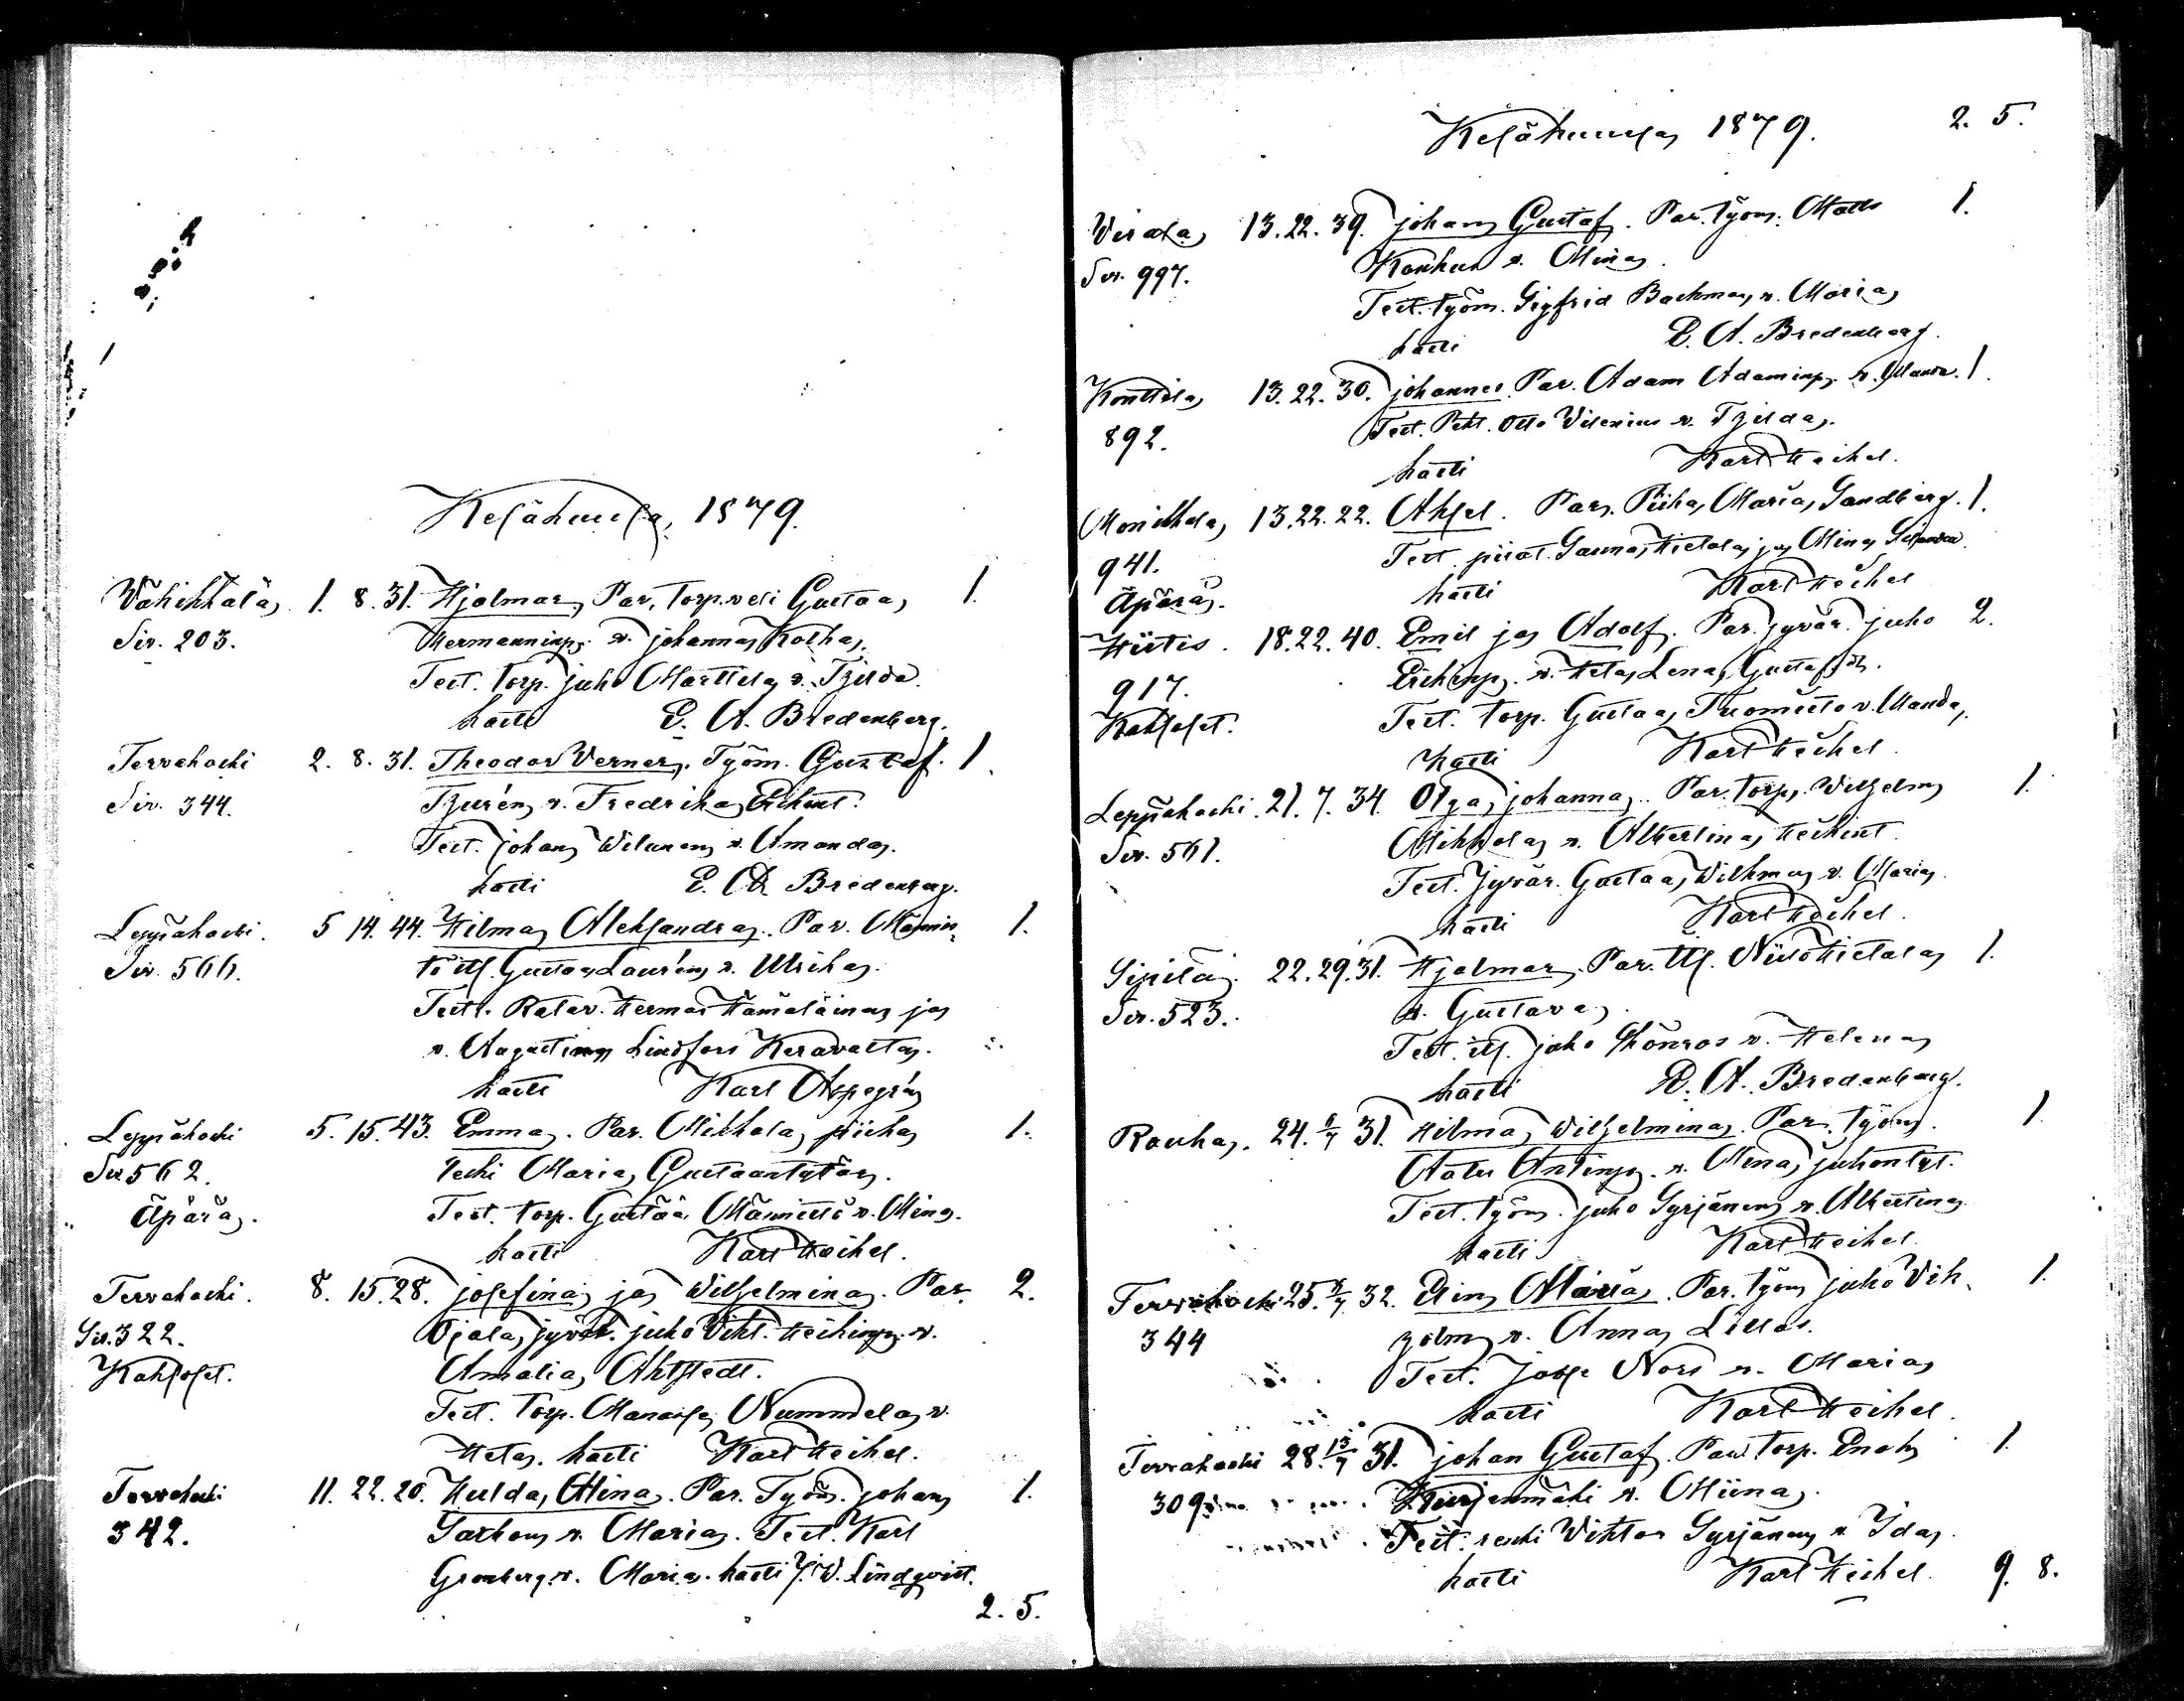 Kesäkuusa, 1879.
Vähikkälä, 1. 8. 31. Hjalmar, Par. Torp.veli Gustaa, 1.
Siv. 203. Hermanninp. v. Johanna Kolha,
Test. Torp. Juho Marttila v. Fjilda.
kasti E. A. Bredenberg.
Tervakoski 2. 8. 31. Theodor Verner, Työm. Gustaf. 1.
Siv. 344. Tjurén, v. Fredrika Erikint.
Test. Johan, v. Amanda,
kasti E. A. Bredenberg.
Leppäkoski. 5 14. 44. Hilma, Aleksandra, Par. Männis- 1.
Siv. 566. tö Gustaa Laurén, v. Ulrika,
Test. Ratav. Herman Hämäläinen, ja,
v. Augustina, Lindfors Keravalta,
kasti Karl Aspegrén
Leppäkoski 5. 15. 43. Emma, Par. Mikkola, piika, 1.
Siv 562. leski Maria, Gustaantytär,
Äpärä. Test. torp. Gustaa Männistö v. Mina.
kasti Karl Heikel.
Tervakoski. 8. 15. 28. Josefina, ja, Vilhelmina, Par. 2.
Siv. 322. Ojala, jyväk. Juho Viht. Heikinp. v.
Kaksoset. Amalia, Ahlstedt.
Test. Torp. Manasse, Nummela, v.
Heta, kasti Karl Heikel.
Tervakoski 11. 22. 20. Hulda, Mina, Par. Työm. Johan, 1.
342. v. Maria, Test. Karl
Grönberg, v. Maria, kasti J. V. Lindqvist.
2. 5.
Kesäkuusa, 1879. 2. 5.
Virala, 13. 22. 39. Johan, Gustaf. Par. Työm. Matts 1.
Siv. 997. v. Mina,
Test. työm. Sigfrid Backman, v. Maria,
kasti E. A. Bredenberg.
Konttila, 13. 22. 30. Johannes. Par. Adam Adaminp. v. Manda. 1.
892. Test. Otto Vilenius v. Fjilda,
kasti Karl Heikel.
Monikkala, 13. 22. 22. Aksel. Par. Piika, Maria, Sandberg. 1.
941. Test. piiat. Hietala, ja, Mina,
Äpärä. kasti Karl Heikel
Hiitis. 18. 22. 40. Emil ja, Adolf, Par. jyvär. Juho 2.
917. Erikinp. v. Heta, Lena, Gustafst.
Kaksoset. Test. Torp. Gustaa, Tuomisto v. Manda,
kasti Karl Heikel.
Leppäkoski. 21. 7. 34. Olga, Johanna, Par. torp. Vilhelm, 1.
Siv. 561. Mikkola, v. Albertina, Heikint.
Test. Jyvär. Gustaa, Vilkman, v. Maria,
kasti Karl Heikel.
Sipilä, 22. 29. 31. Hjalmar, Par. Niilo Hietala, 1.
Siv. 523. v. Gustava,
Test. Juho v. Helena,
kasti E. A. Bredenberg.
Rauha, 24. 6/7 31. Hilma, Vilhelmina, Par. työm. 1.
Aatu Antinp. v. Mina, Juhontyt.
Test. työm. Juho Syrjänen, v. Albertina,
kasti Karl Heikel
Tervakoski 25. 6/7. 32. Elin, Maria, Par. työm. Juho Vik- 1.
344 holm, v. Anna, Lillas.
Test. Joose Nors v. Maria,
kasti Karl Heikel.
Tervakoski 28. 13/7 31. Johan Gustaf. Par. Torp. Enok, 1.
309 Kurjenmäki v. Miina,
Test. renki Viktor Syrjänen, v. Ida,
kasti Karl Heikel. 9. 8.